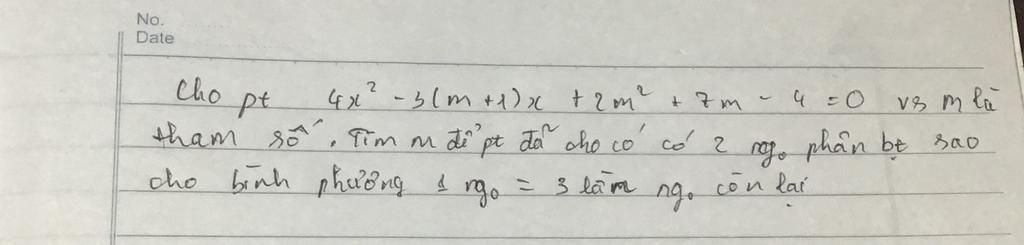 No.
Date
Cho pt 4x² - 3(m+1)x + 2m² + 7m - 4 = 0 vs m là
tham số. Tìm m để pt đã cho có có 2 ngo phân bt sao
cho bình phương 1 ngo = 3 lần ngo còn lại